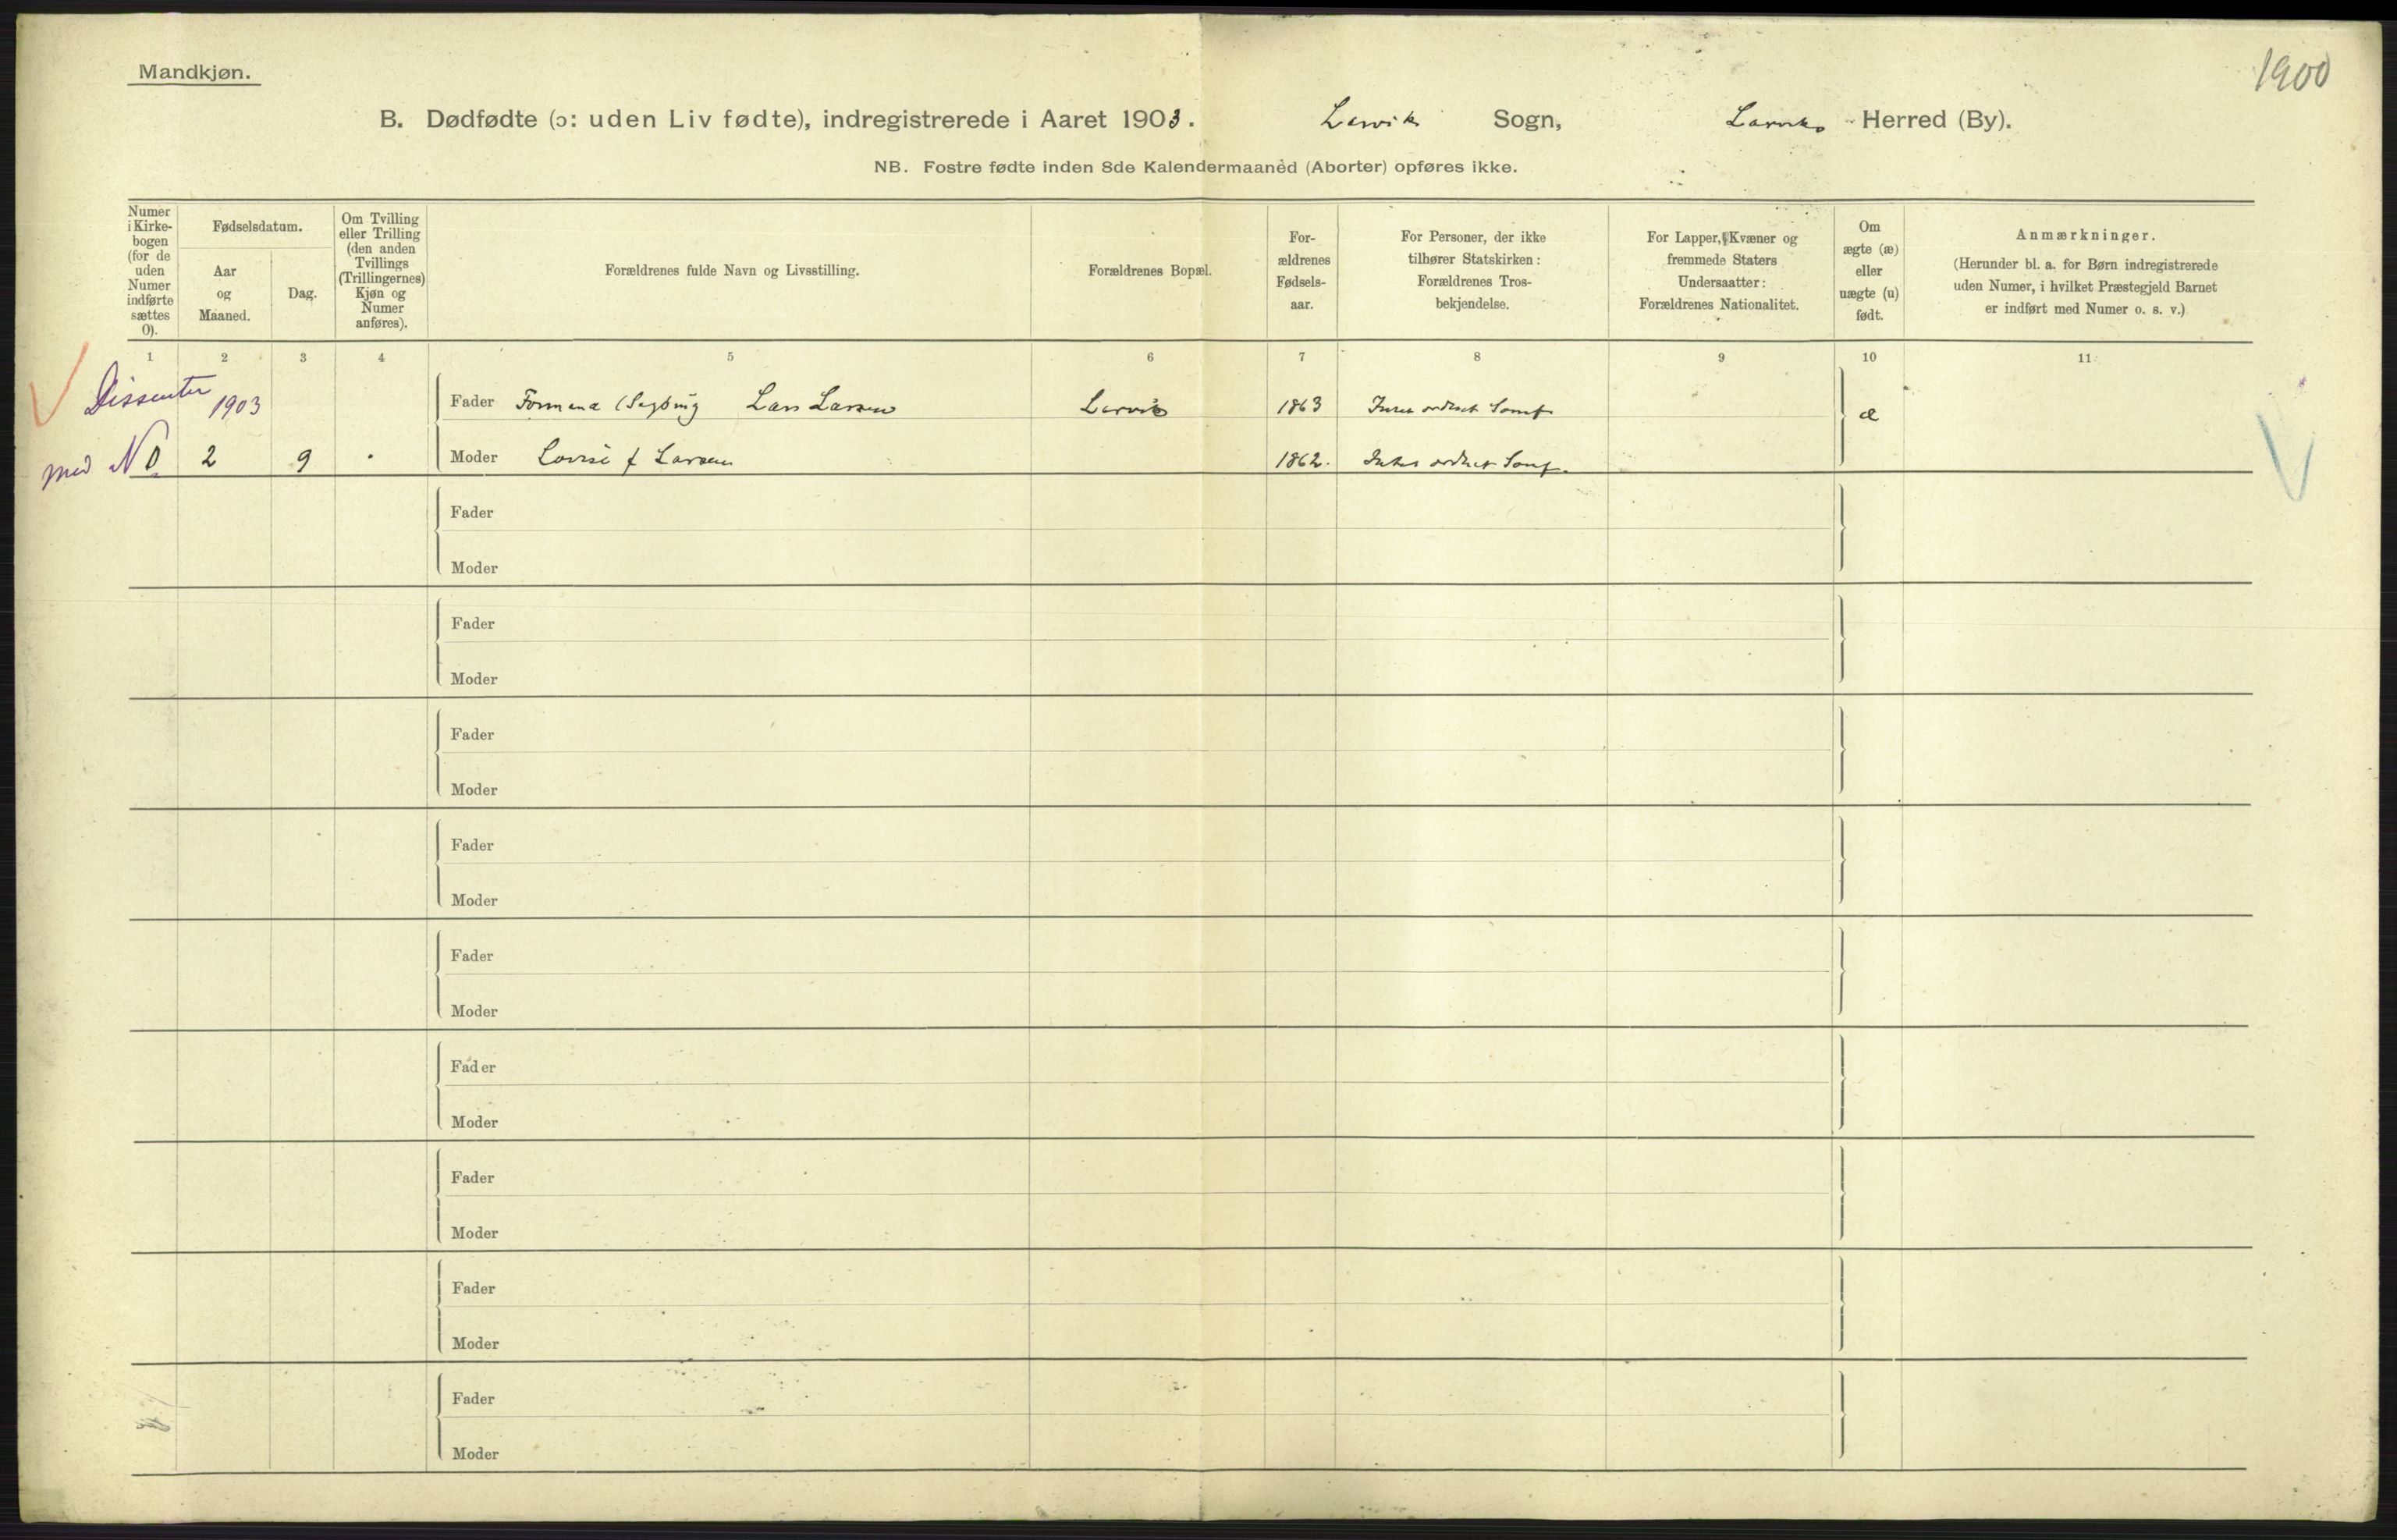 Mandkjøn.
1900
B. Dødfødte (ɔ: uden Liv fødte), indregistrerede i Aaret 1903. Larvik Sogn, Larviks Herred (By).
NB. Fostre fødte inden 8de Kalendermaaned (Aborter) opføres ikke.
Numer
i Kirke-
bogen
(for de
uden
Numer
indførte
sættes
0).
Fødselsdatum.
Aar
og
Maaned.
Dag.
Om Tvilling
eller Trilling
(den anden
Tvillings
(Trillingernes)
Kjøn og
Numer
anføres).
Forældrenes fulde Navn og Livsstilling.
Forældrenes Bopæl.
For-
ældrenes
Fødsels-
aar.
For Personer, der ikke
tilhører Statskirken:
Forældrenes Tros-
bekjendelse.
For Lapper, Kvæner og
fremmede Staters
Undersaatter:
Forældrenes Nationalitet.
Om
ægte (æ)
eller
uægte (u)
født.
Anmærkninger.
(Herunder bl. a. for Børn indregistrerede
uden Numer, i hvilket Præstegjeld Barnet
er indført med Numer o. s. v.)
1 2 3 4 5 6 7 8 9 10 11
Dissenter 1903 Fader Formand Lars Larsen Larvik 1863 æ
med No 2 9 Moder Lovise f Larsen 1862.
Fader
Moder
Fader
Moder
Fader
Moder
Fader
Moder
Fader
Moder
Fader
Moder
Fader
Moder
Fader
Moder
Fader
Moder